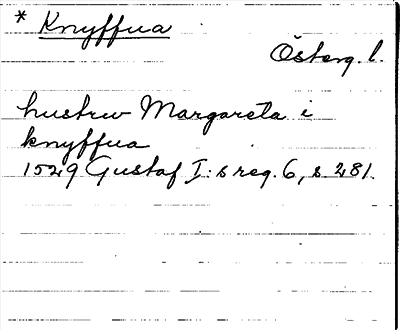 * Knyffua
Österg. l.
hustrw Margareta i
knyffua
1529 Gustaf I:s reg. 6, s. 281.